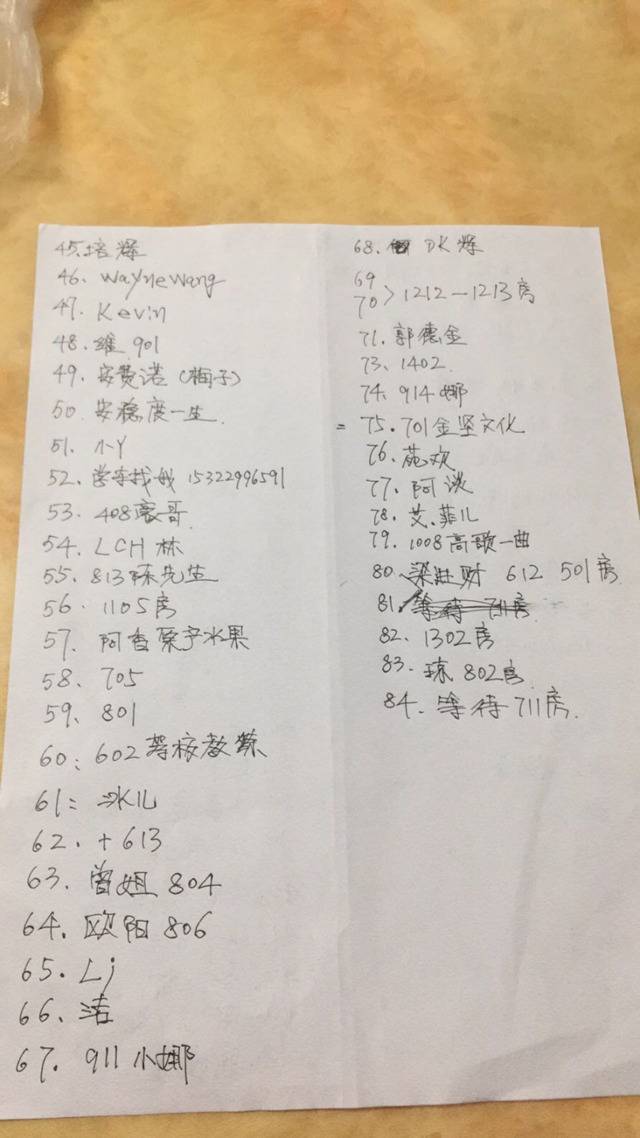 45.培辉
46、Waynewang
47、Kevin
48、维 901
49、安费诺(梅子)
50、安稳度一生
51、小Y
52、学车找我 15322996591
53、408豪哥
54、LCH 林
55、813 陈先生
56、1105房
57、阿香原产水果
58、705
59、801
60:602 教练
61:冰儿
62、+613
63、曾姐 804
64、欧阳 806
65、Lj
66、洁
67、911 小娜
68、DK辉
69
70 > 1212—1213房
71、郭德金
73、1402
74、914 娜
= 75、701金坚文化
76、苑欢
77、阿淡
78、艾菲儿
79、1008高歌一曲
80、梁旺财 612 501房
81、等待 711房
82、1302房
83、琼 802房
84、等待 711房